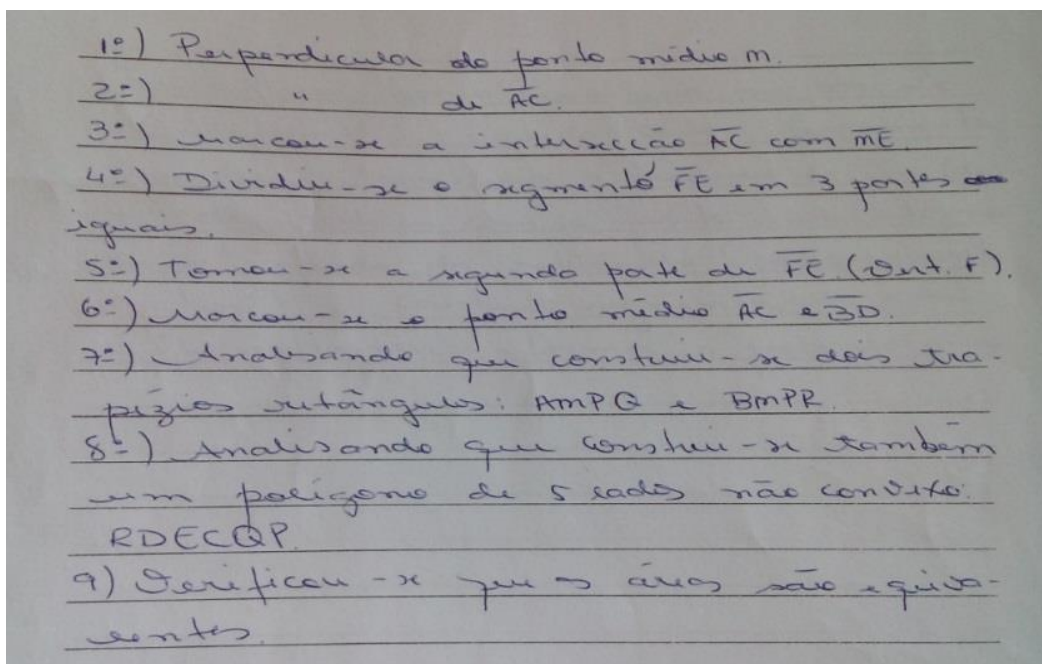 1º) Perpendicular do ponto médio M.
2º) " de AC.
3º) Marcou-se a intersecção AC com ME.
4º) Dividiu-se o segmento FE em 3 partes
iguais.
5º) Tomou-se a segunda parte de FE (Vert. F).
6º) Marcou-se o ponto médio AC e BD.
7º) Analisando que construiu-se dois tra-
pézios retângulos: AMPQ e BMPR.
8º) Analisando que construi-se também
um polígono de 5 lados não convexo:
RDECQP.
9) Verificou-se que as áreas são equiva-
lentes.